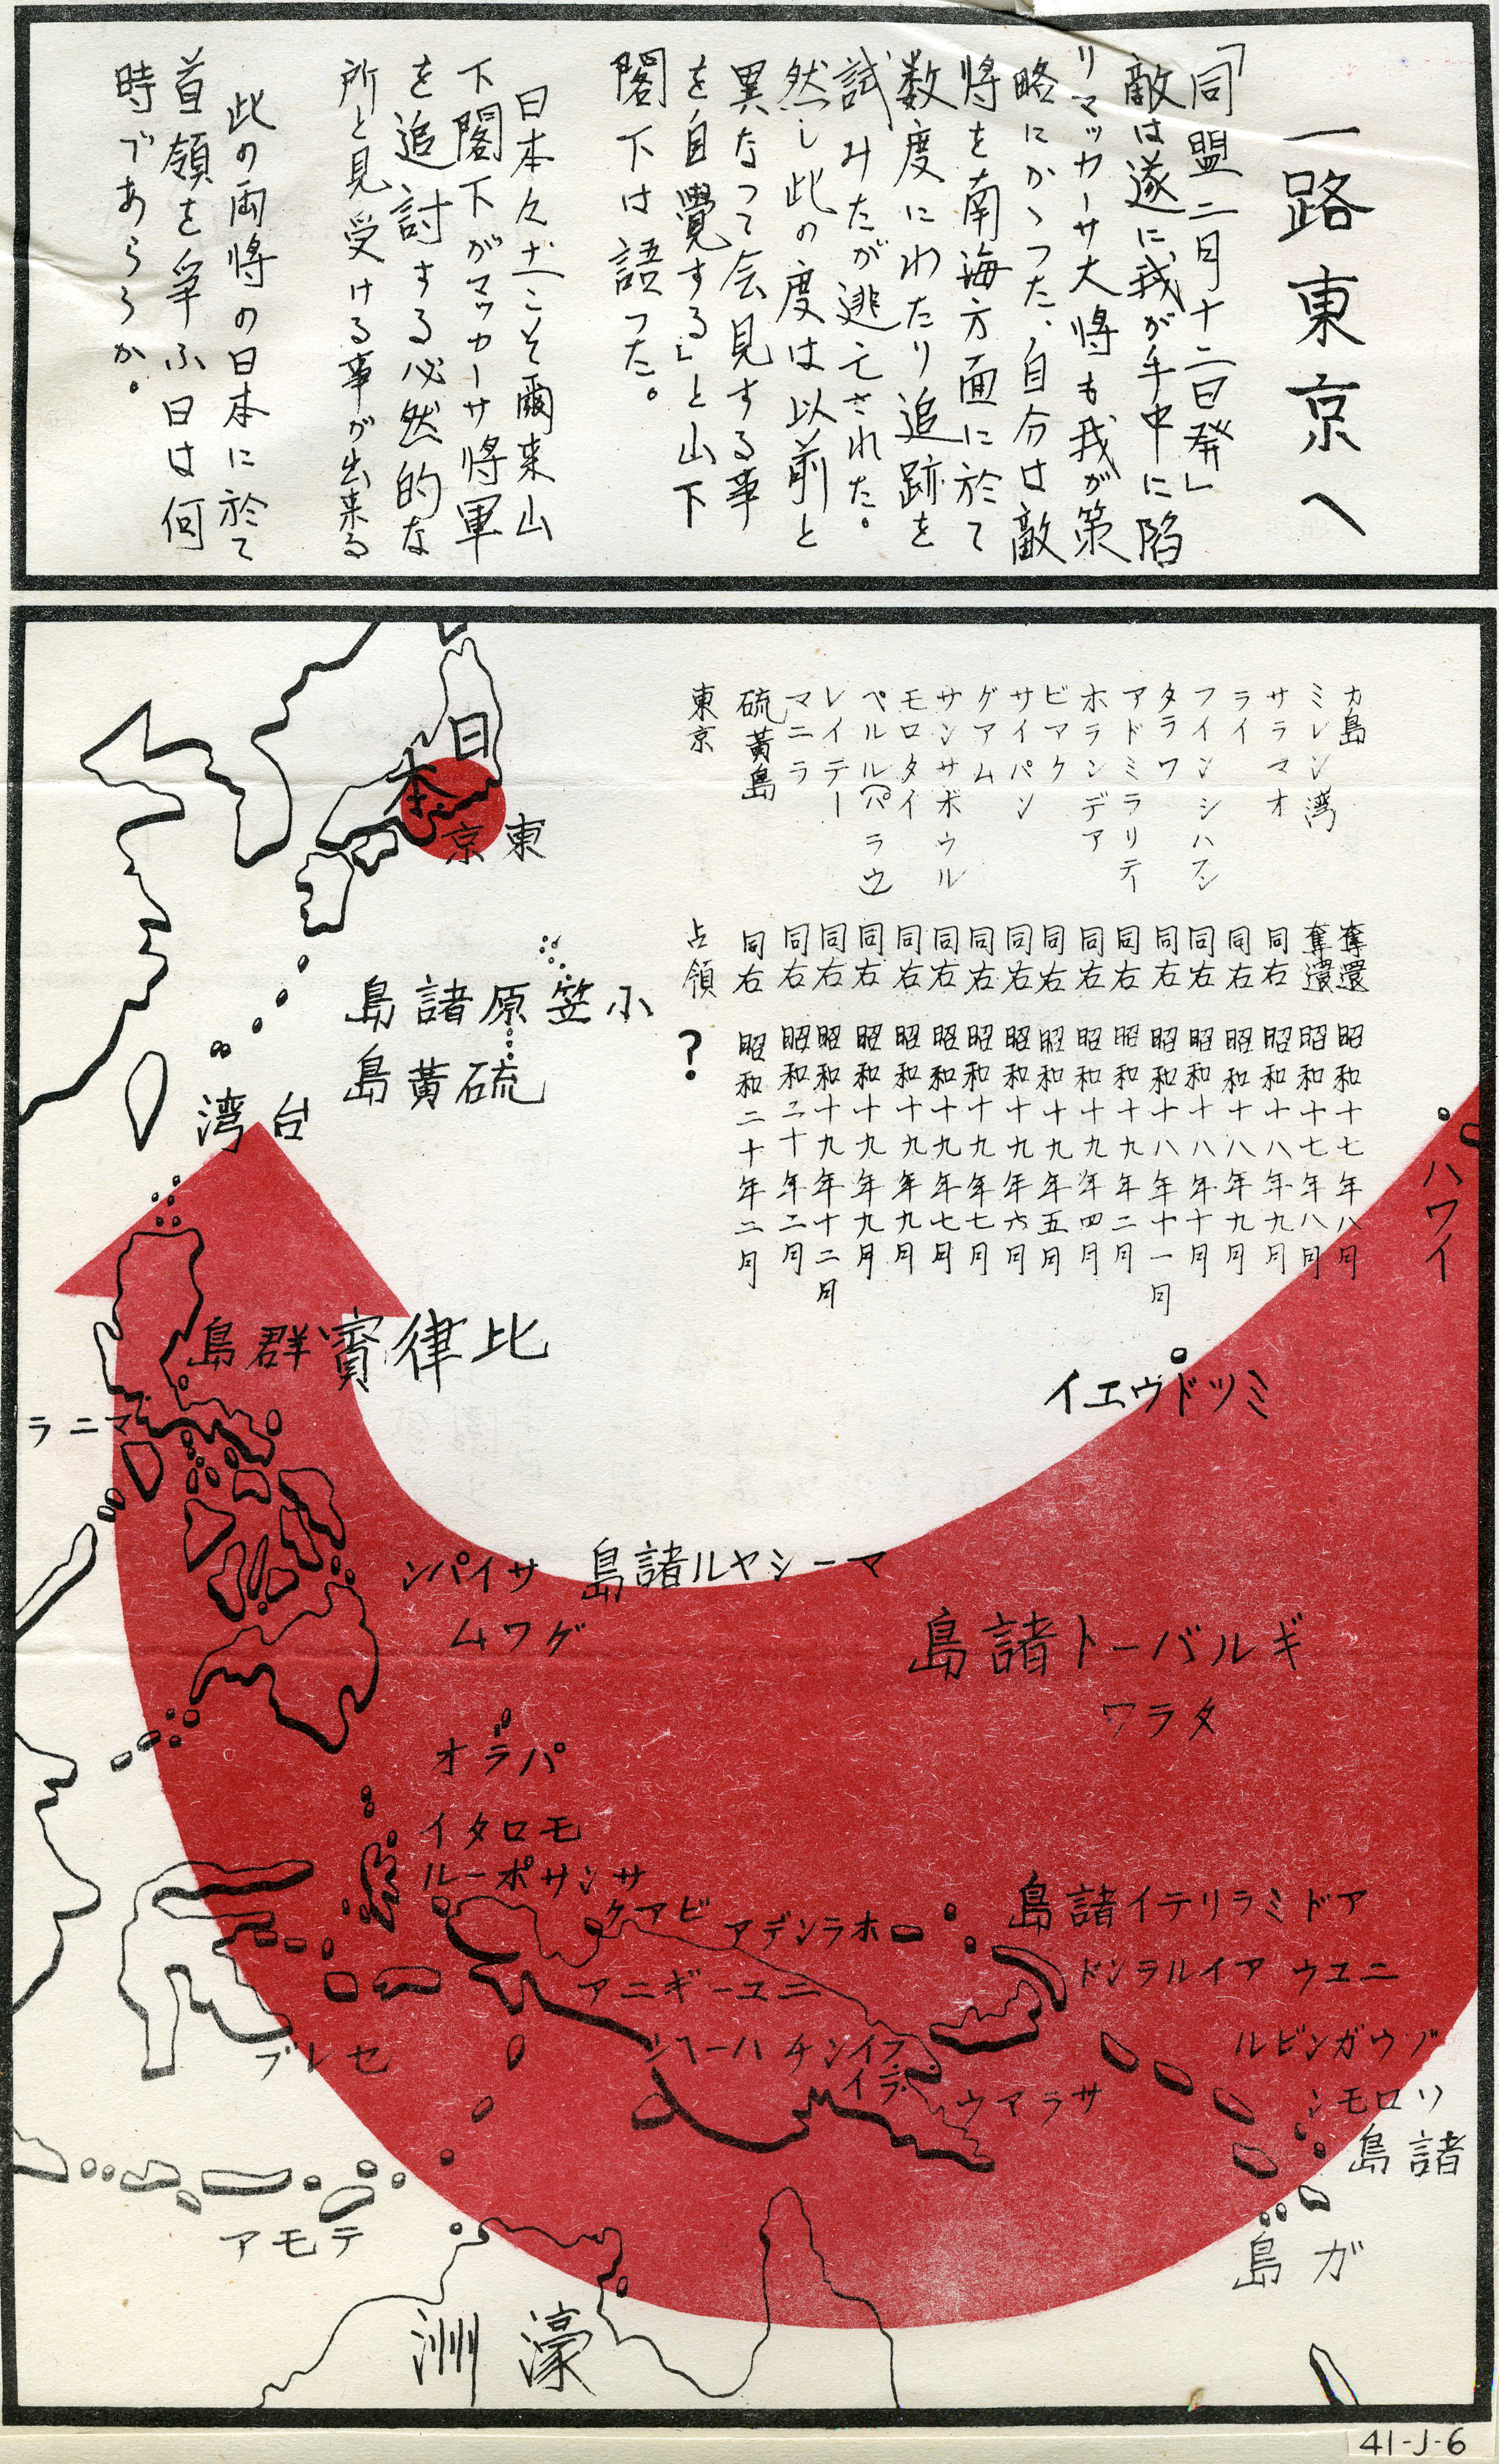 一路東京へ
「同盟二月十二日発」
敵は遂に我が手中に陥
りマッカーサ大将も我が策
略にかゝつた、自分は敵
将を南海方面に於て
数度にわたり追跡を
試みたが逃亡された。
然し此の度は以前と
異なつて会見する事
を自覺する」と山下
閣下は語つた。
日本々土こそ爾来山
下閣下がマッカーサ将軍
を追討する必然的な
所と見受ける事が出来る
此の両将の日本に於て
首領を爭ふ日は何
時であらうか。
カ島 奪還 昭和十七年八月
ミレン湾 奪還 昭和十七年八月
サラマオ 同右 昭和十八年九月
ライ 同右 昭和十八年九月
フインシハフン 同右 昭和十八年十月
タラワ 同右 昭和十八年十一月
アドミラリテー 同右 昭和十九年二月
ホランデア 同右 昭和十九年四月
ビアク 同右 昭和十九年五月
サイパン 同右 昭和十九年六月
グアム 同右 昭和十九年七月
サンサボウル 同右 昭和十九年七月
モロタイ 同右 昭和十九年九月
ペルル(パラウ) 同右 昭和十九年九月
レイテー 同右 昭和十九年十二月
マニラ 同右 昭和二十年二月
硫黃島 同右 昭和二十年二月
東京 占領 ?
日本
東京
小笠原諸島
硫黃島
台湾
ハワイ
比律賓群島
マニラ
ミッドウエイ
サイパン
マーシャル諸島
グワム
ギルバート諸島
タラワ
パラオ
モロタイ
サンサポール
ビアク
ホランデア
アドミラリテイ諸島
ニユーギニア
ニユウ アイルランド
セレブ
フインチハーヘン
ライ
サラアウ
ブウガンビル
ソロモン
諸島
テモア
ガ島
濠洲
41-J-6